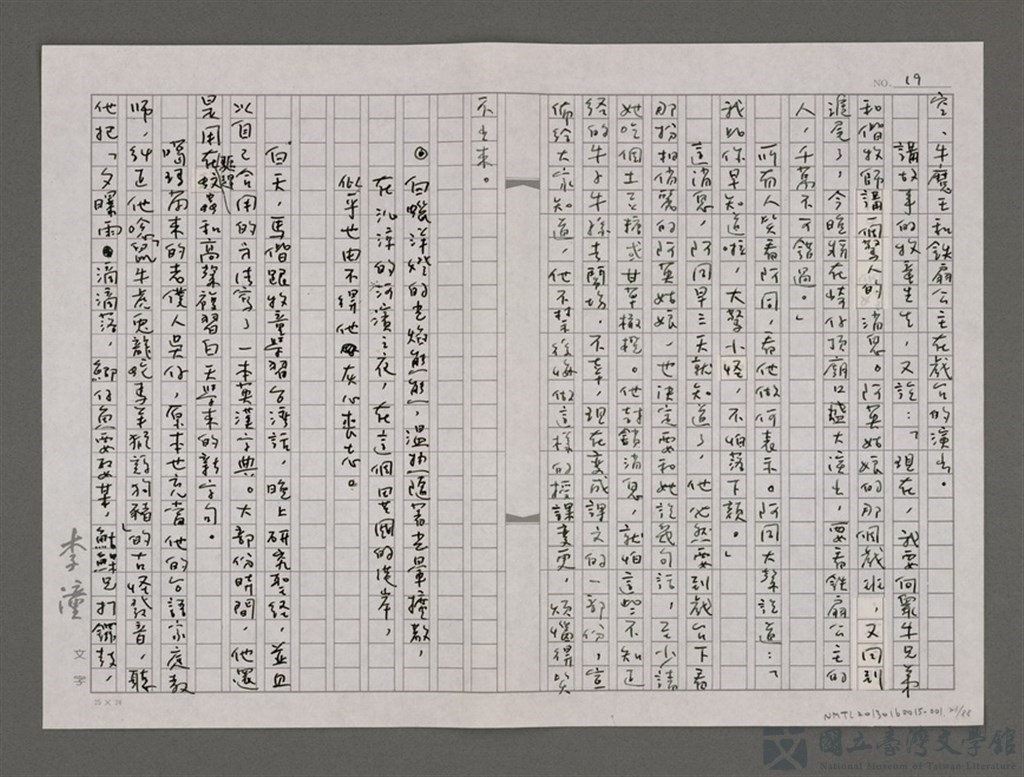 NO. 19
空、牛魔王和鐵扇公主在戲台的演出。
講故事的牧童生生，又說：「現在，我要向眾牛兄弟
和偕牧師講一個驚人的消息。阿莫姑娘的那個戲班，又回到
滬尾了，今晚將在崎仔頂廟口盛大演出，要看鐵扇公主的
人，千萬不可錯過。」
所有人皆看阿同，看他做何表示。阿同大聲說道：「
我比你早知道啦，大驚小怪，不怕落下頦。」
這消息，阿同早三天就知道了，他必然要到戲台下看
那扮相俏麗的阿莫姑娘，也決定要和她說幾句話，至少請
她吃個土豆糖或甘草橄欖。他封鎖消息，就怕這些不知正
經的牛子牛孫去鬧場。不幸，現在變成課文的一部份，宣
佈給大家知道，他不禁後悔做這樣的授課變更，煩惱得笑
不出來。
◎白蠟洋燈的光焰熊熊，溫熱隨著光暈擴散，
在沁涼的河濱之夜，在這個異國的港岸，
似乎也由不得他灰心喪志。
白天，馬偕跟牧童學習台灣話，晚上研究聖經，並且
以自己合用的方法寫了一本英漢字典。大部份時間，他還
是用在驅趕蚊蟲和高聲複習白天學來的新字句。
噶瑪蘭來的老僕人吳仔，原本也充當他的台語家庭教
師，糾正他唸鼠「牛虎兔龍蛇馬羊猴雞狗豬」的古怪發音，聽
他把「夕曝雨，滴滴落，鯽仔魚要娶某，鮕鮘兄打鑼鼓，
李潼
文字
25 × 24
NMTL20130160015-001
國立臺灣文學館
National Museum of Taiwan Literature